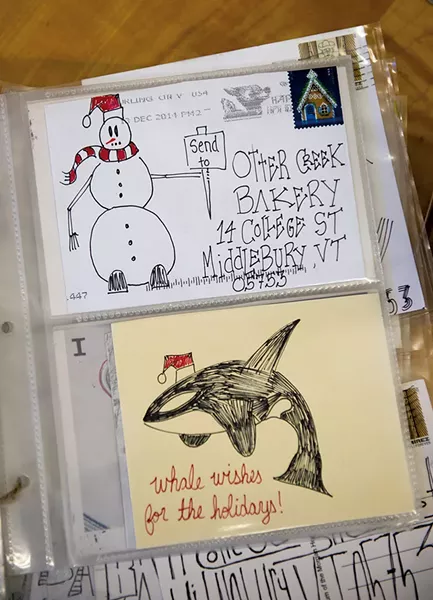 DEC 2014 PM 2
Send
to
OTTER CREEK
BAKERY
14 COLLEGE ST
MIDDLEBURY, VT
05753
.447
I
whale wishes
for the holidays!
53